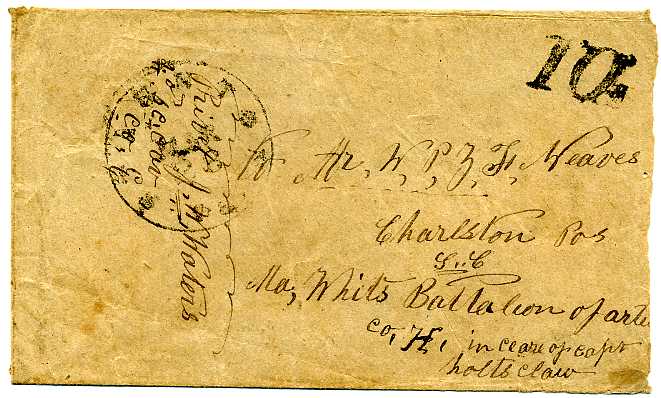 10
To Mr, W, P, Z, F, Neaves.
Charlston Pos
S..C
Ma, Whits Battaleon of arte
co, H, in ceare of capt
holtsclaw
Private J. N.
Co, C